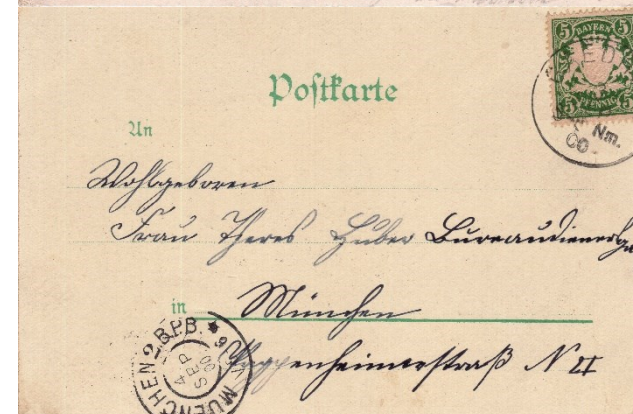 5 BAYERN 5
5 PFENNIG 5
Nm.
00
Postkarte
An
Wohlgeboren
Frau Theres Huber Bureaudieners
in München
Pappenheimerstraß N
MUENCHEN 2 B.P.B.
4
SEP
00